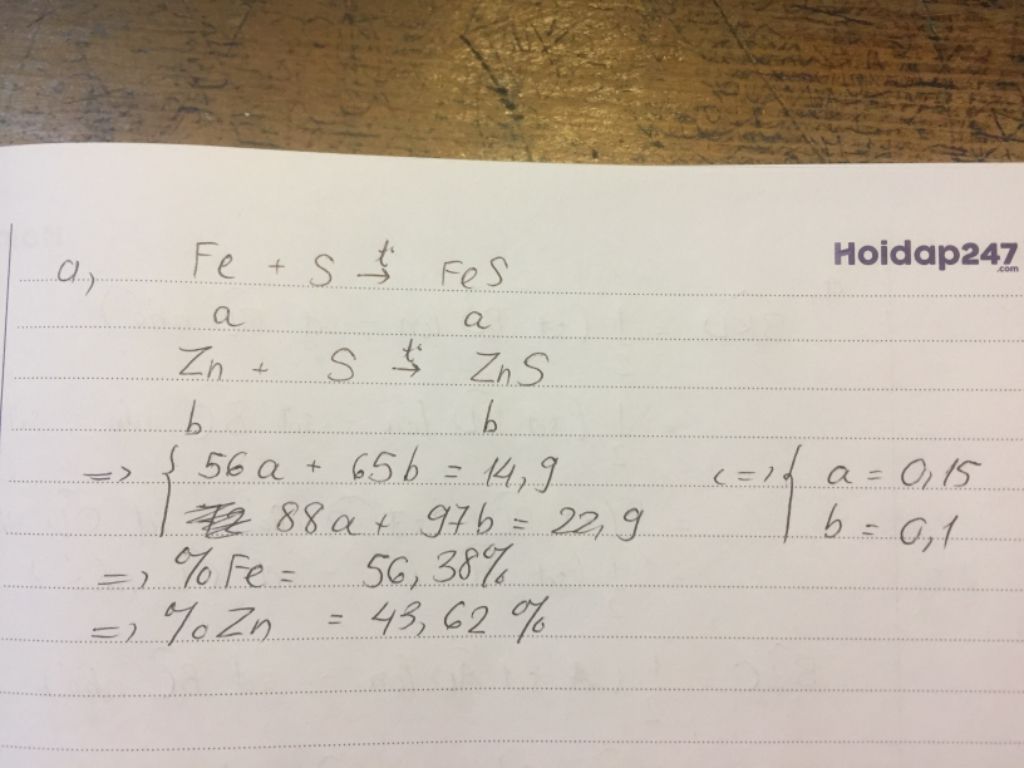 Hoidap247
.com
a, Fe + S t° → FeS
a a
Zn + S t° → ZnS
b b
=> { 56a + 65b = 14,9 <=> { a = 0,15
88a + 97b = 22,9 b = 0,1
=> %Fe = 56,38%
=> %Zn = 43,62%